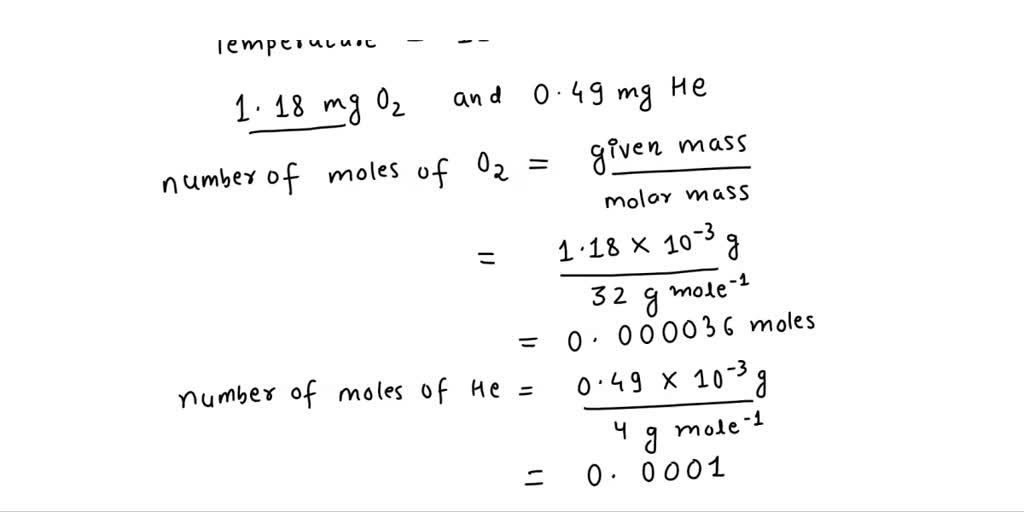 Temperature =
1.18 mg O₂ and 0.49 mg He
number of moles of O₂ = given mass
molar mass
= 1.18 × 10⁻³ g
32 g mole⁻¹
= 0.000036 moles
number of moles of He = 0.49 × 10⁻³ g
4 g mole⁻¹
= 0.0001